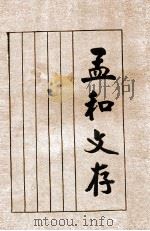 孟和文存
mtoou.info